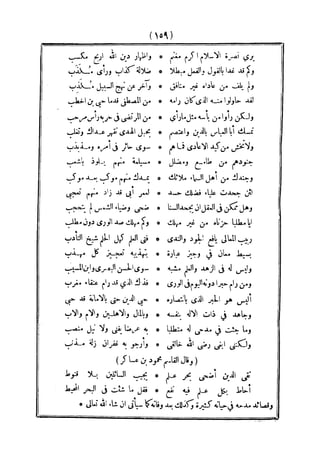 ﴿ ١٥٩ ﴾
يرى نصرة الاسلام اكرم مغنم * واظهار دين الله اربح مكسب
وكم قد غدا بالقول والفعل مبطلا * ضلالة كذاب ورأى مكذب
ولم يلف من عاداه غير منافق * وآخر عن نهج السبيل منكب
لقد حاولوا منه الذى كان رامه * من المصطفى قدما حيى بن اخطب
ولكن رأوا من بأسه مثل ما رأى * من المرتضى فى حربه رأس مرحب
تمسك أبا العباس بالدين واعتصم * بحبل الهدى تقهر عداك وتغلب
ولا تخش من كيد الاعادى فما هم * سوى حائر فى أمره ومذبذب
جنودهم من طامع ومضلل * مسيلمة منهم يلوذ باشعب
وجندك من أهل السماء ملائك * يمدك منهم موكب بعد موكب
لئن جحدت علياء فضلك حسد * لعمر أبى قد زاد منهم تعجبى
وهل ممكن فى العقل ان يجحد السنا * ضحى وضياء الشمس لم يتحجب
ايا مطلبا حزناه من غير مهلك * وكم مهلك صد الورى دون مطلب
ربيب المعالى يافع الجود والندى * فتى العلم كهل الحلم شيخ التأدب
بسيط معان فى وجيز عبارة * بتهذيبه تعجيز كل مهذب
وليس له فى الزهد والعلم مشبه * سوى الحسن البصرى وابن المسيب
ومن رام حبرا دونه اليوم فى الورى * فذاك الذى قد رام عنقاء مغرب
أليس هو الحبر الذى بانتصاره * حبى الدين حتى بالامانة قد حبى
وجاهد فى ذات الاله بنفسه * وبالمال والاهلين والام والاب
وما جئت فى مدحى له متطلبا * به عرضا يفنى ولا نيل منصب
ولكننى ابغى رضى الله خالقى * وأرجو به غفران زلة مذنب
﴿ وقال القاسم محمود بن عساكر ﴾
تقى الدين أضحى بحر علم * يجيب السائلين بلا قنوط
أحاط بكل علم فيه نفع * فقل ما شئت فى البحر المحيط
وقصائد مدحه فى حياته كثيرة وكذلك بعد وفاته كما سيأتى ان شاء الله تعالى *